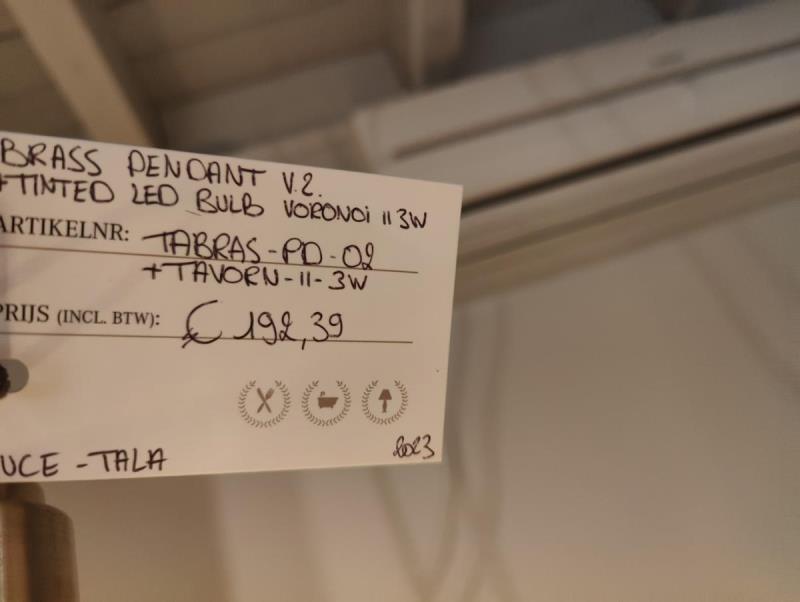 BRASS PENDANT V.2.
+TINTED LED BULB VORONOI II 3W
ARTIKELNR: TABRAS-PD-02
+TAVORN-II-3W
PRIJS (INCL. BTW): € 192,39
UCE - TALA
2023